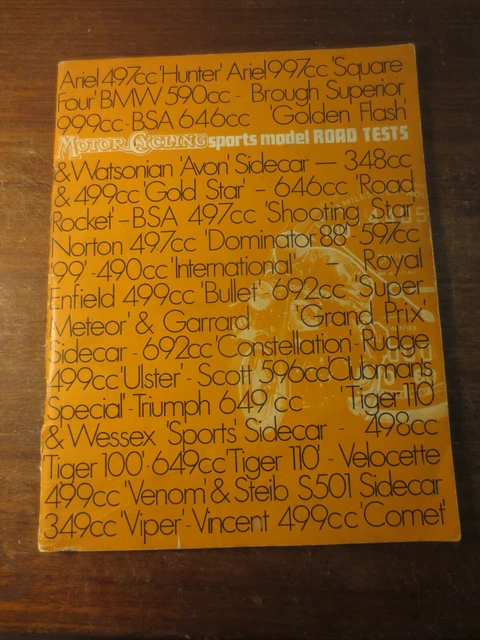 Ariel 497cc 'Hunter' Ariel 997cc 'Square
Four' BMW 590cc - Brough Superior
999cc - BSA 646cc 'Golden Flash'
MOTOR CYCLING sports model ROAD TESTS
& Watsonian 'Avon' Sidecar — 348cc
& 499cc 'Gold Star' - 646cc 'Road
Rocket' - BSA 497cc 'Shooting Star'
Norton 497cc 'Dominator 88' - 597cc
'99' - 490cc 'International' - Royal
Enfield 499cc 'Bullet' - 692cc 'Super
Meteor' & Garrard 'Grand Prix'
Sidecar - 692cc 'Constellation' - Rudge
499cc 'Ulster' - Scott 596cc 'Clubmans
Special' - Triumph 649cc 'Tiger 110'
& Wessex 'Sports' Sidecar - 498cc
'Tiger 100' - 649cc 'Tiger 110' - Velocette
499cc 'Venom' & Steib S501 Sidecar
349cc 'Viper' - Vincent 499cc 'Comet'